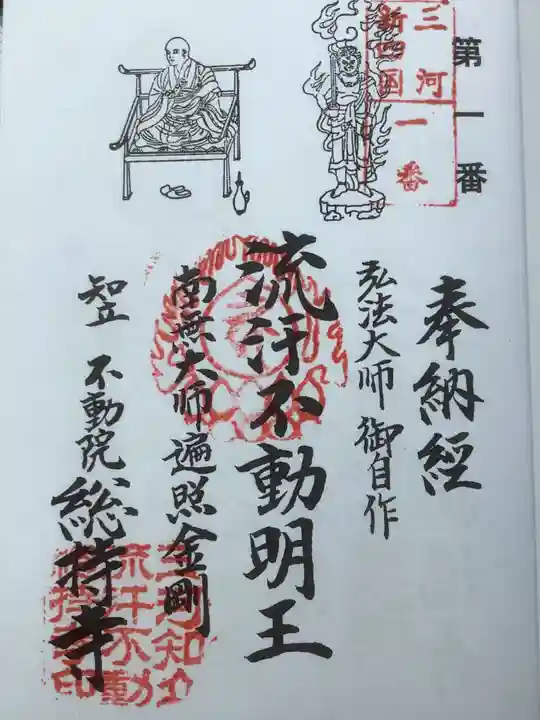 第一番
三河
新四国
一番
奉納経
弘法大師御自作
流汗不動明王
南無大師遍照金剛
知立 不動院 総持寺
三河知立
流汗不動
総持寺印